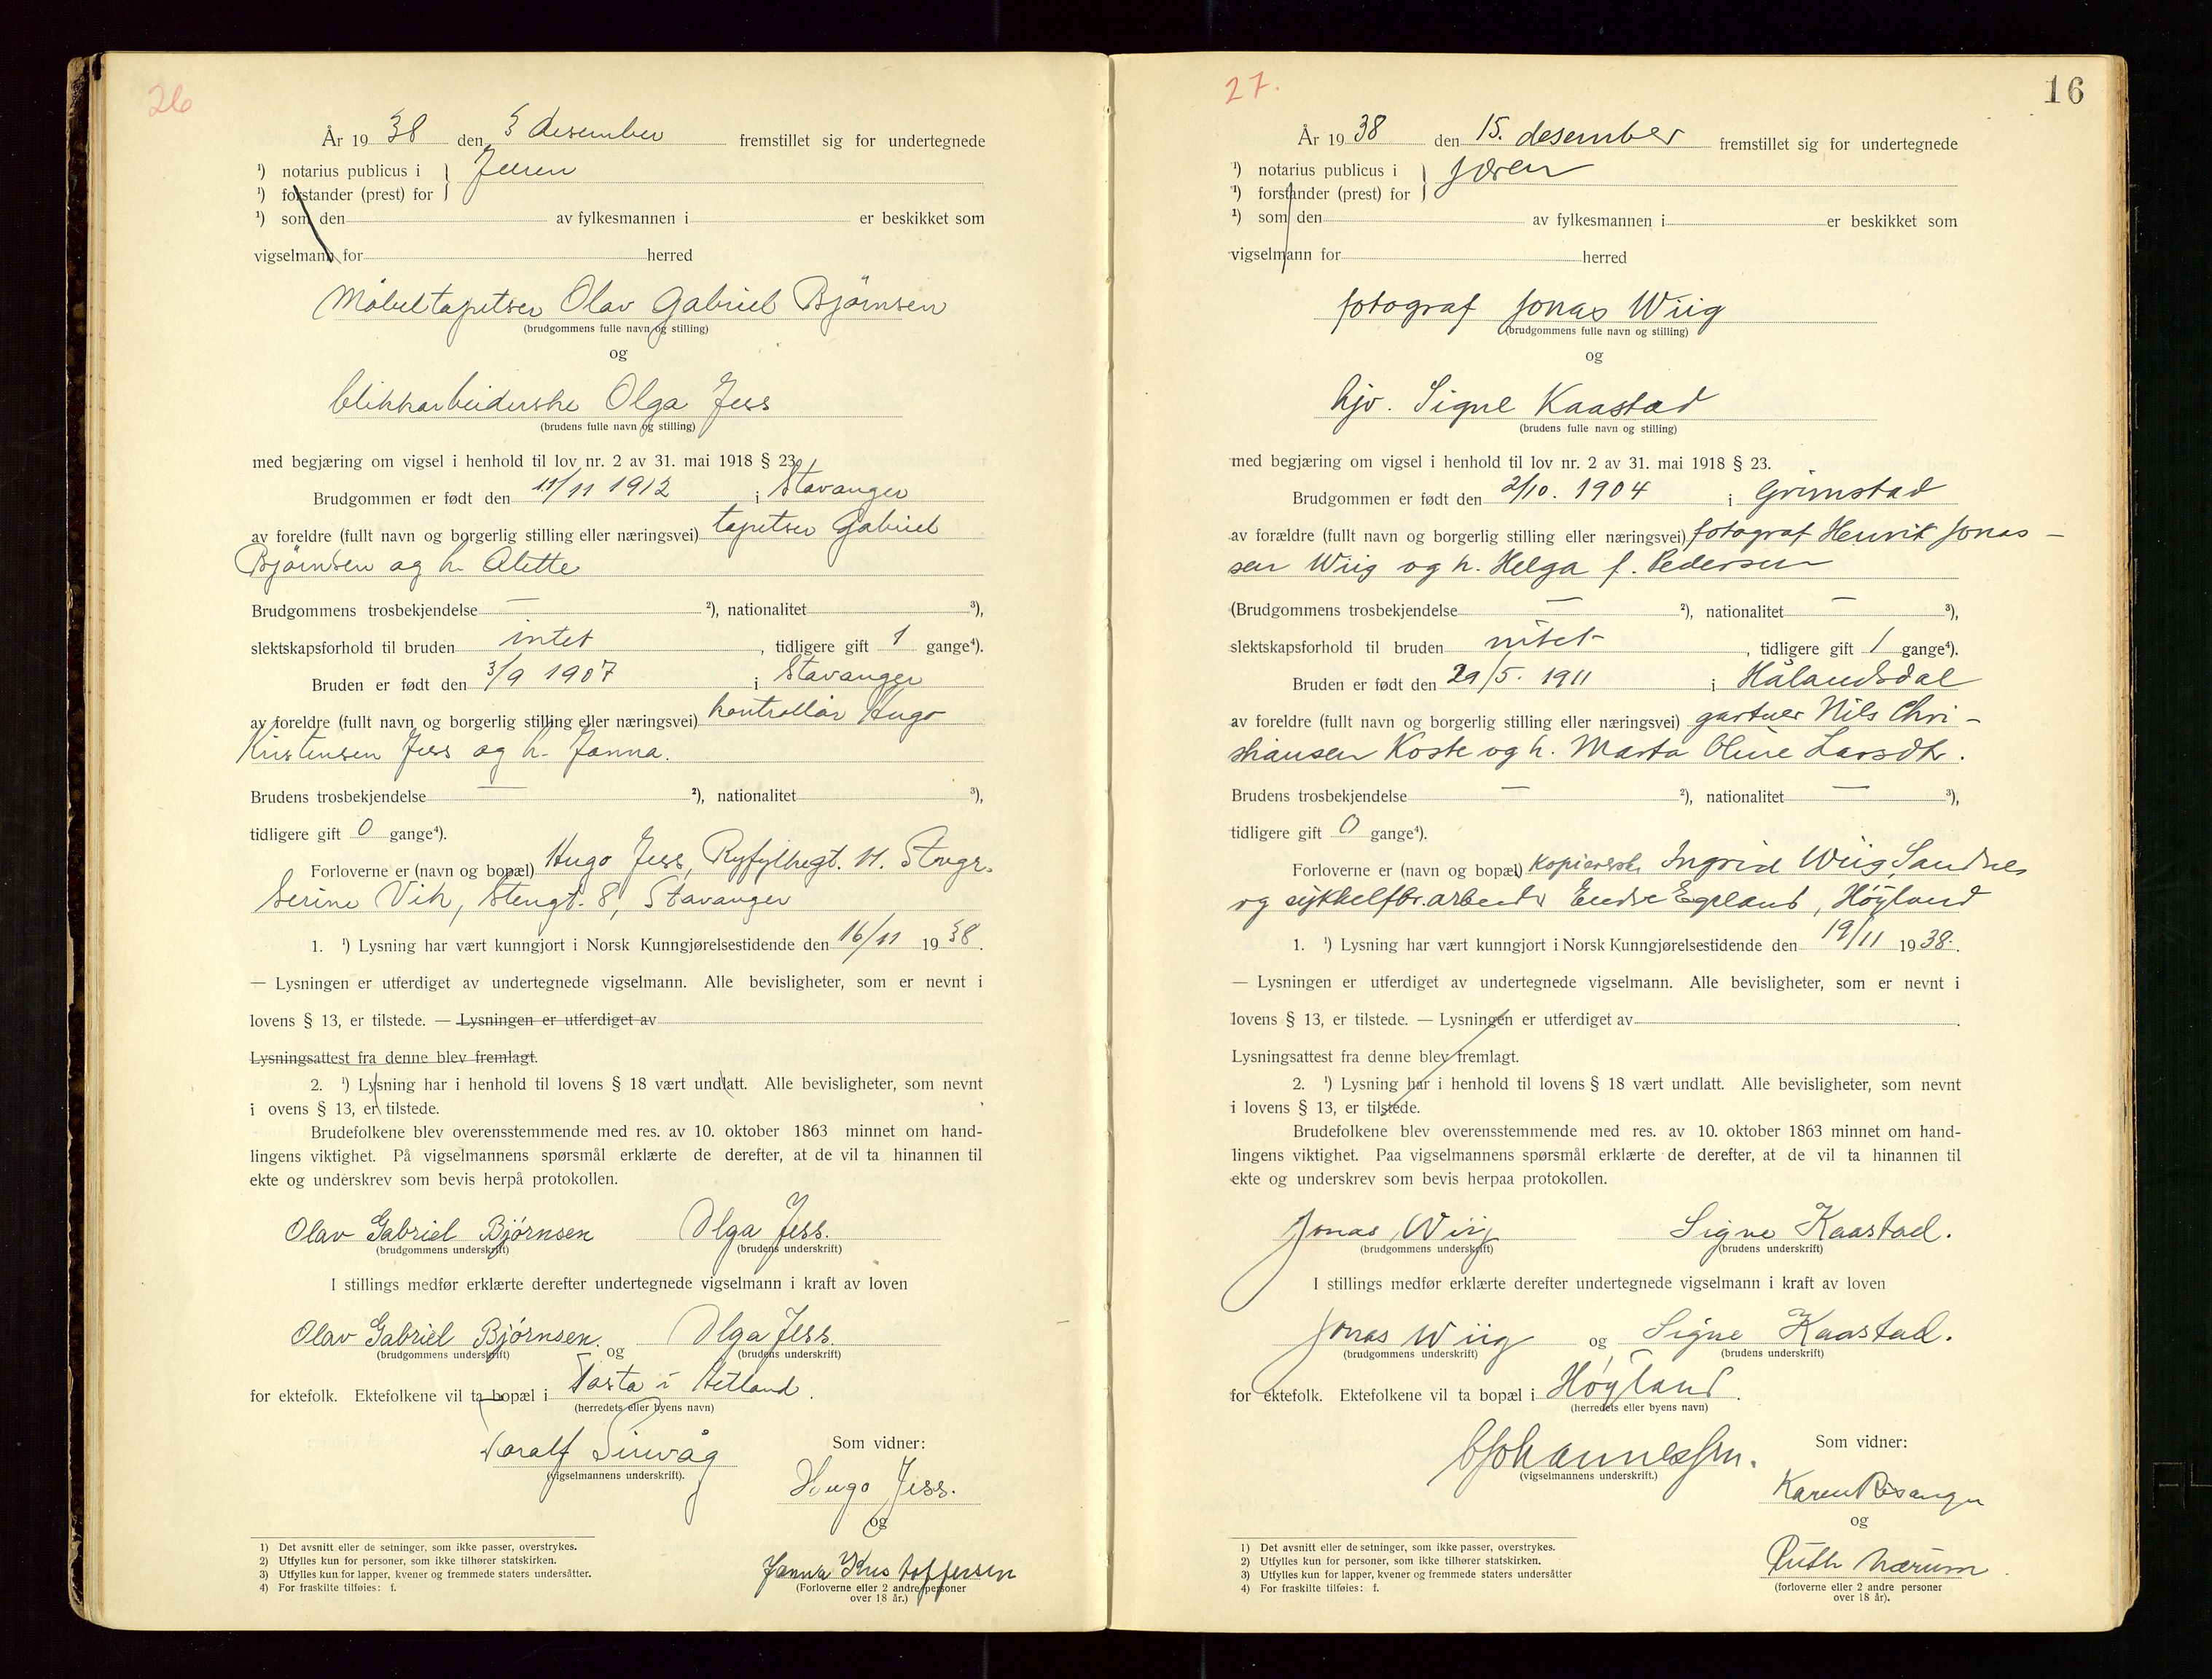 26
År 19 38 den 3 desember fremstillet sig for undertegnede
¹) notarius publicus i } Jæren
¹) forstander (prest) for
¹) som den av fylkesmannen i er beskikket som
vigselmann for herred
Møbeltapetser Olav Gabriel Bjørnsen
(brudgommens fulle navn og stilling)
og
blikkarbeiderske Olga Jess
(brudens fulle navn og stilling)
med begjæring om vigsel i henhold til lov nr. 2 av 31. mai 1918 § 23.
Brudgommen er født den 11/11 1912 i Stavanger
av foreldre (fullt navn og borgerlig stilling eller næringsvei) tapetser Gabriel
Bjørnsen og h. Alette
Brudgommens trosbekjendelse — ²), nationalitet ³),
slektskapsforhold til bruden intet, tidligere gift 1 gange⁴).
Bruden er født den 3/9 1907 i Stavanger
av foreldre (fullt navn og borgerlig stilling eller næringsvei) kontrollør Hugo
Kristensen Jess og h. Janna.
Brudens trosbekjendelse — ²), nationalitet ³),
tidligere gift 0 gange⁴).
Forloverne er (navn og bopæl) Hugo Jess, Ryfylkegt. 14. Stvgr.
Serine Vik, Stengt. 8, Stavanger
1. ¹) Lysning har vært kunngjort i Norsk Kunngjørelsestidende den 16/11 19 38.
— Lysningen er utferdiget av undertegnede vigselmann. Alle bevisligheter, som er nevnt i
lovens § 13, er tilstede. — Lysningen er utferdiget av
Lysningsattest fra denne blev fremlagt.
2. ¹) Lysning har i henhold til lovens § 18 vært undlatt. Alle bevisligheter, som nevnt
i ovens § 13, er tilstede.
Brudefolkene blev overensstemmende med res. av 10. oktober 1863 minnet om hand-
lingens viktighet. På vigselmannens spørsmål erklærte de derefter, at de vil ta hinannen til
ekte og underskrev som bevis herpå protokollen.
Olav Gabriel Bjørnsen Olga Jess.
(brudgommens underskrift) (brudens underskrift)
I stillings medfør erklærte derefter undertegnede vigselmann i kraft av loven
Olav Gabriel Bjørnsen. og Olga Jess.
(brudgommens underskrift) (brudens underskrift)
for ektefolk. Ektefolkene vil ta bopæl i Tasta i Hetland.
(herredets eller byens navn)
Toralf Sirevåg Som vidner:
(vigselmannens underskrift).
Hugo Jess.
og
Janna Kristoffersen
(Forloverne eller 2 andre personer
over 18 år.)
1) Det avsnitt eller de setninger, som ikke passer, overstrykes.
2) Utfylles kun for personer, som ikke tilhører statskirken.
3) Utfylles kun for lapper, kvener og fremmede staters undersåtter.
4) For fraskilte tilføies: f.
27.
16
År 19 38 den 15. desember fremstillet sig for undertegnede
¹) notarius publicus i } Jæren
¹) forstander (prest) for
¹) som den av fylkesmannen i er beskikket som
vigselmann for herred
fotograf Jonas Wiig
(brudgommens fulle navn og stilling)
og
hjv. Signe Kaastad
(brudens fulle navn og stilling)
med begjæring om vigsel i henhold til lov nr. 2 av 31. mai 1918 § 23.
Brudgommen er født den 2/10. 1904 i Grimstad
av forældre (fullt navn og borgerlig stilling eller næringsvei) fotograf Henrik Jonas-
sen Wiig og h. Helga f. Pedersen
(Brudgommens trosbekjendelse — ²), nationalitet — ³),
slektskapsforhold til bruden intet, tidligere gift 1 gange⁴).
Bruden er født den 29/5. 1911 i Hålandsdal
av foreldre (fullt navn og borgerlig stilling eller næringsvei) gartner Nils Chri-
stiansen Koste og h. Marta Oline Larsdtr.
Brudens trosbekjendelse — ²), nationalitet — ³),
tidligere gift 0 gange⁴).
Forloverne er (navn og bopæl) Kopiererske Ingrid Wiig, Sandnes
og sykkelfbr.arbeider Endre Egeland, Høyland
1. ¹) Lysning har vært kunngjort i Norsk Kunngjørelsestidende den 19/11 19 38.
— Lysningen er utferdiget av undertegnede vigselmann. Alle bevisligheter, som er nevnt i
lovens § 13, er tilstede. — Lysningen er utferdiget av
Lysningsattest fra denne blev fremlagt.
2. ¹) Lysning har i henhold til lovens § 18 vært undlatt. Alle bevisligheter, som nevnt
i lovens § 13, er tilstede.
Brudefolkene blev overensstemmende med res. av 10. oktober 1863 minnet om hand-
lingens viktighet. Paa vigselmannens spørsmål erklærte de derefter, at de vil ta hinannen til
ekte og underskrev som bevis herpaa protokollen.
Jonas Wiig Signe Kaastad.
(brudgommens underskrift) (brudens underskrift)
I stillings medfør erklærte derefter undertegnede vigselmann i kraft av loven
Jonas Wiig og Signe Kaastad.
(brudgommens underskrift) (brudens underskrift)
for ektefolk. Ektefolkene vil ta bopæl i Høyland.
(herredets eller byens navn)
Johannessen. Som vidner:
(vigselmannens underskrift.)
Karen Risanger
og
Ruth Nærum
(forloverne eller 2 andre personer
over 18 år).
1) Det avsnitt eller de setninger, som ikke passer, overstrykes.
2) Utfylles kun for personer, som ikke tilhører statskirken.
3) Utfylles kun for lapper, kvener og fremmede staters undersåtter
4) For fraskilte tilføies: f.